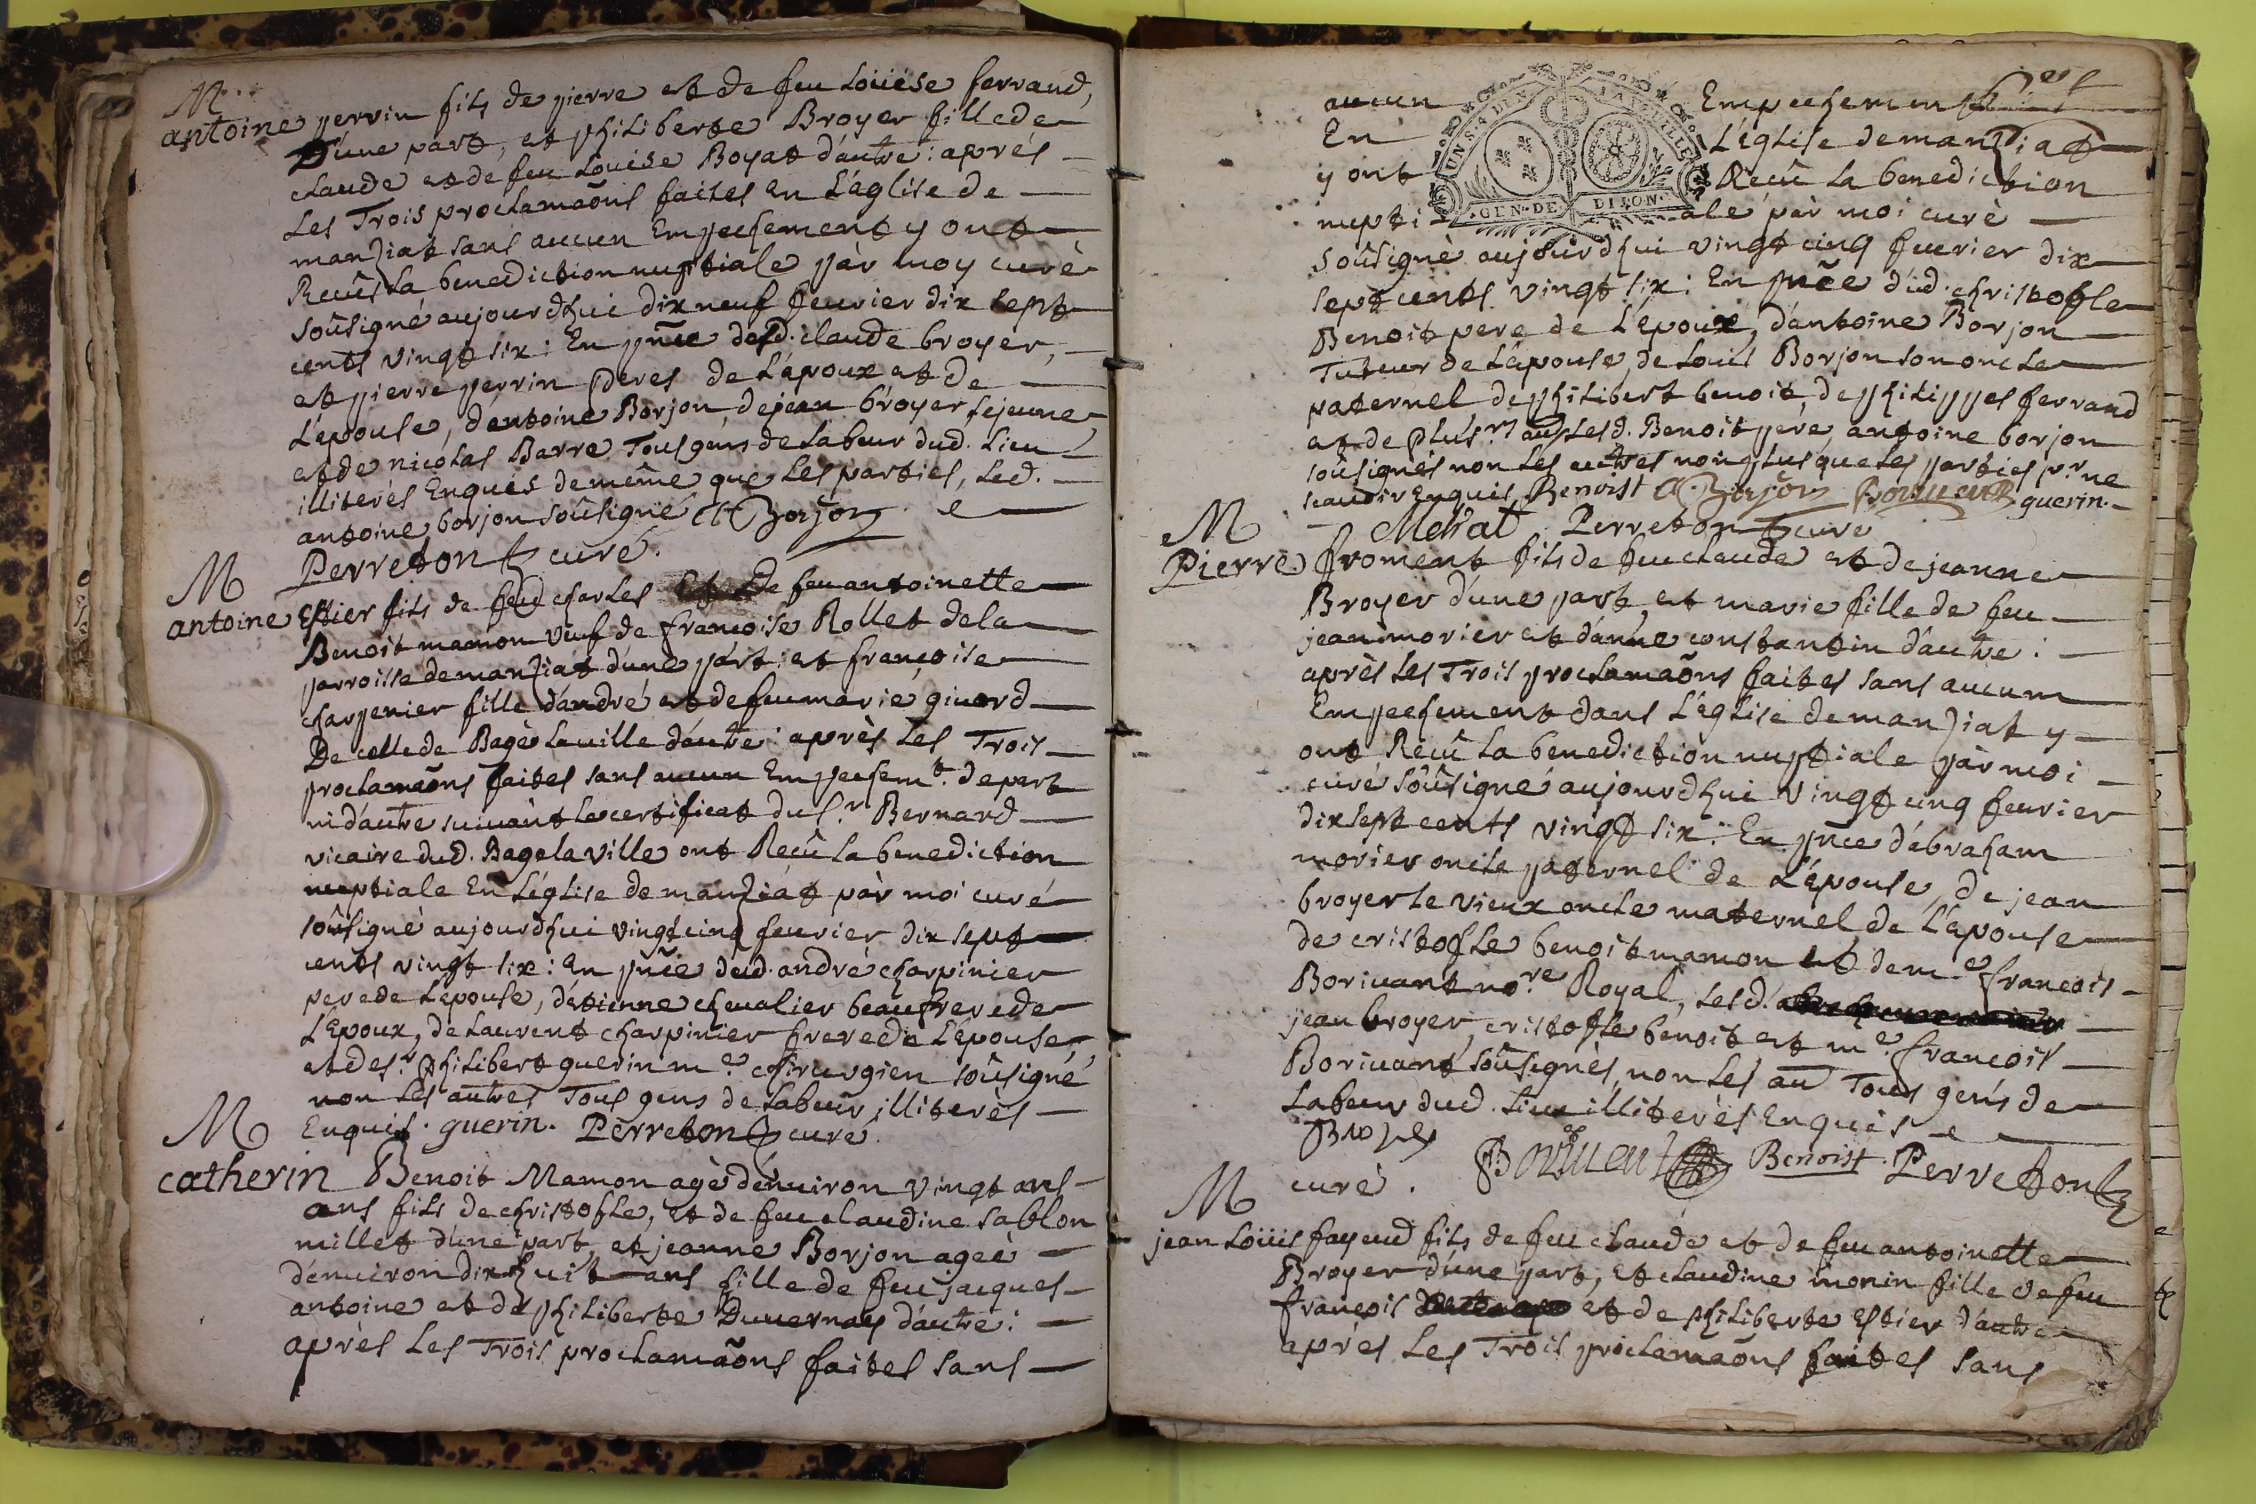 M
antoine perrin fils de pierre et de feu Loüése ferrand,
D'úne part, et philiberte Broyer fille de
claude et de feu Louise Boyat d'autre: aprés
Les Trois proclamaõns faites En L'église de
manziat sans aucun Empechement y ont
Recûs La benediction nuptiale pàr moy curé
soûsigné aujourdhui dix neuf feurier dix sept
cents vingt six: En pñce dud. claude broyer,
et pierre perrin peres de L'époux et de
L'épouse, d'antoine Borjon, de jean broyer Lejeune,
et de nicolas Barre Tous gens de Labeur dud. Lieu
illiterés Enquis de même que Les parties, Led.
antoine borjon soûsigné A Borjon
Perreton curé.
M
antoine Estier fils de feu charles Et De feu antoinette
Benoit mamon veuf de françoise Rollet de la
parroisse de manziat d'une part: et françoise
charpenier fille d'andré et de feu marie giuord
De celle de Bagé La ville d'autre: aprés Les Trois
proclamaõns faites sans aucun Empechemt. de part
ni d'autre suivant Le certificat du Sr. Bernard
vicaire dud. Bagé la ville ont Recû La benediction
nuptiale En L'église de manziat pàr moi curé
soûsigné aujourdhui vingt cinq feurier dix sept
cents vingt six: En pñce dud. andré charpinier
pere de L'épouse, d'etienne cheualier beaufrere de
L'Epoux, de Laurent charpinier frere de L'epouse,
et de sr. philibert guerin me. chirurgien soûsigné
non Les autres Tous gens de Labeur illiterés
Enquis. guerin. Perreton curé.
M
catherin Benoit Mamon agè d'enuiron vingt ans
ans fils de christofle, et de feu claudine sablon
millet d'úne part, et jeanne Borjon ageè
d'enuiron dix huit ans fille de feu jacques
antoine et de philiberte Duuernay d'autre:
aprés Les Trois proclamaõns faites sans
aucun Empechemen
En L'église de manziat
y ont Recû La benediction
nupti ale pàr moi curé
UN S. 4 DEN LA FEUILLE
GEN DE DIJON
soûsigné aujourdhui vingt cinq feurier dix
sept cents vingt six: En pñce dúd. christofle
Benoit pere de L'époux, d'antoine Borjon
Tuteur de L'épouse, de Louis Borjon son oncle
paternel de philibert benoit, de philippes ferrand
et de plusrs au Lesd. Benoit pere, antoine borjon
soûsignés non Les autres non plus que Les parties pr. ne
scaudir Enquis Benoist A Borjon guerin.
Perreton curé
M
Pierre froment fils de feu claude et de jeanne
Broyer d'une part, et marie fille de feu
jean morier et d'anne constantin d'autre:
aprés Les Trois proclamaõns faites sans aucun
Empechement dans L'Eglise de manziat y
ont Recû La benediction nuptiale pàr moi
curé soûsigné aujourdhui vingt cinq feurier
dix sept cents vingt six: En pñce d'ebraham
morier oncle paternel de L'épouse, de jean
broyer Le vieux oncle maternel de L'épouse
de cristofle benoit mamon et de me. francois
Boriuant nore. Royal, Lesd.
jean broyer, cristofle benoit et me. francois
Boriuant soûsignés, non Les au Tous gens de
Labeur dud. Lieu illiterés Enquis
Benoist. Perreton
curé.
M
jean Loüis fayeud fils de feu claude et de feu antoinette
Broyer d'úne part, et claudine monin fille de feu
françois et de philiberte Estier d'autre
aprés Les Trois proclamaõns faites sans